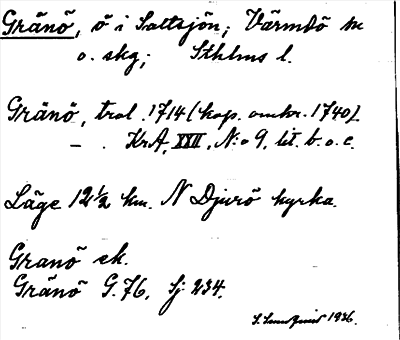 Gränö, ö i Saltsjön; Värmdö sn
o. skg; Sthlms l.
Gränö, trol. 1714 (kop. omkr. 1740).
— . KrA, XXII, N:o 9, lit. b. o. c.
Läge 12½ km. N Djurö kyrka.
Granö ek.
Gränö G. 76. Sj: 234.
1936.